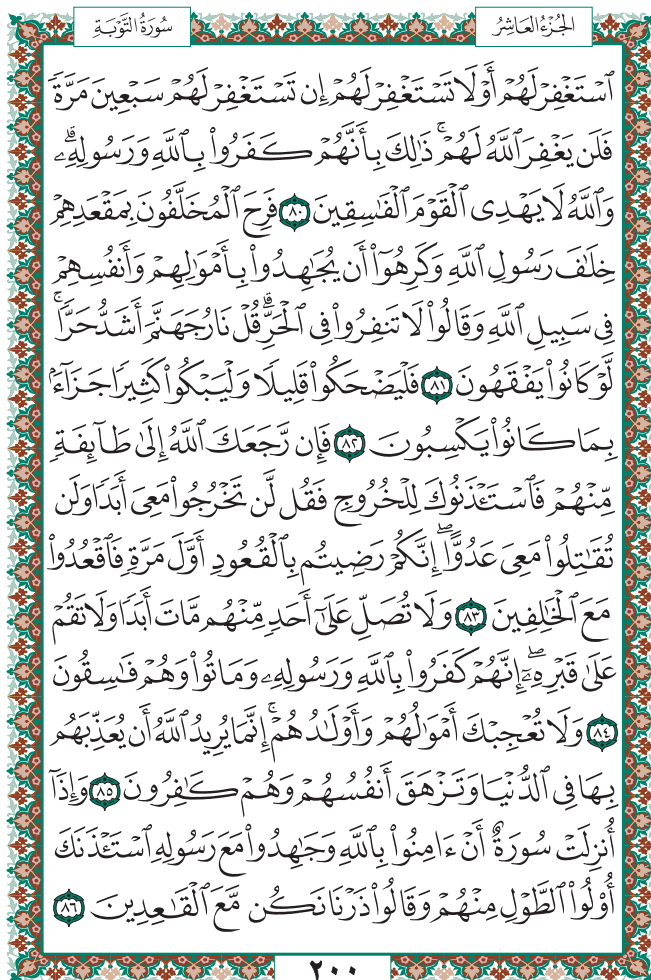 الجُزْءُ العَاشِرُ
سُورَةُ التَّوْبَةِ
ٱسۡتَغۡفِرۡ لَهُمۡ أَوۡ لَا تَسۡتَغۡفِرۡ لَهُمۡ إِن تَسۡتَغۡفِرۡ لَهُمۡ سَبۡعِينَ مَرَّةٗ
فَلَن يَغۡفِرَ ٱللَّهُ لَهُمۡۚ ذَٰلِكَ بِأَنَّهُمۡ كَفَرُواْ بِٱللَّهِ وَرَسُولِهِۦۗ
وَٱللَّهُ لَا يَهۡدِي ٱلۡقَوۡمَ ٱلۡفَٰسِقِينَ ٨٠ فَرِحَ ٱلۡمُخَلَّفُونَ بِمَقۡعَدِهِمۡ
خِلَٰفَ رَسُولِ ٱللَّهِ وَكَرِهُوٓاْ أَن يُجَٰهِدُواْ بِأَمۡوَٰلِهِمۡ وَأَنفُسِهِمۡ
فِي سَبِيلِ ٱللَّهِ وَقَالُواْ لَا تَنفِرُواْ فِي ٱلۡحَرِّۗ قُلۡ نَارُ جَهَنَّمَ أَشَدُّ حَرّٗاۚ
لَّوۡ كَانُواْ يَفۡقَهُونَ ٨١ فَلۡيَضۡحَكُواْ قَلِيلٗا وَلۡيَبۡكُواْ كَثِيرٗا جَزَآءَۢ
بِمَا كَانُواْ يَكۡسِبُونَ ٨٢ فَإِن رَّجَعَكَ ٱللَّهُ إِلَىٰ طَآئِفَةٖ
مِّنۡهُمۡ فَٱسۡتَـٔۡذَنُوكَ لِلۡخُرُوجِ فَقُل لَّن تَخۡرُجُواْ مَعِيَ أَبَدٗا وَلَن
تُقَٰتِلُواْ مَعِيَ عَدُوًّاۖ إِنَّكُمۡ رَضِيتُم بِٱلۡقُعُودِ أَوَّلَ مَرَّةٖ فَٱقۡعُدُواْ
مَعَ ٱلۡخَٰلِفِينَ ٨٣ وَلَا تُصَلِّ عَلَىٰٓ أَحَدٖ مِّنۡهُم مَّاتَ أَبَدٗا وَلَا تَقُمۡ
عَلَىٰ قَبۡرِهِۦٓۖ إِنَّهُمۡ كَفَرُواْ بِٱللَّهِ وَرَسُولِهِۦ وَمَاتُواْ وَهُمۡ فَٰسِقُونَ
٨٤ وَلَا تُعۡجِبۡكَ أَمۡوَٰلُهُمۡ وَأَوۡلَٰدُهُمۡۚ إِنَّمَا يُرِيدُ ٱللَّهُ أَن يُعَذِّبَهُم
بِهَا فِي ٱلدُّنۡيَا وَتَزۡهَقَ أَنفُسُهُمۡ وَهُمۡ كَٰفِرُونَ ٨٥ وَإِذَآ
أُنزِلَتۡ سُورَةٌ أَنۡ ءَامِنُواْ بِٱللَّهِ وَجَٰهِدُواْ مَعَ رَسُولِهِ ٱسۡتَـٔۡذَنَكَ
أُوْلُواْ ٱلطَّوۡلِ مِنۡهُمۡ وَقَالُواْ ذَرۡنَا نَكُن مَّعَ ٱلۡقَٰعِدِينَ ٨٦
٢٠٠